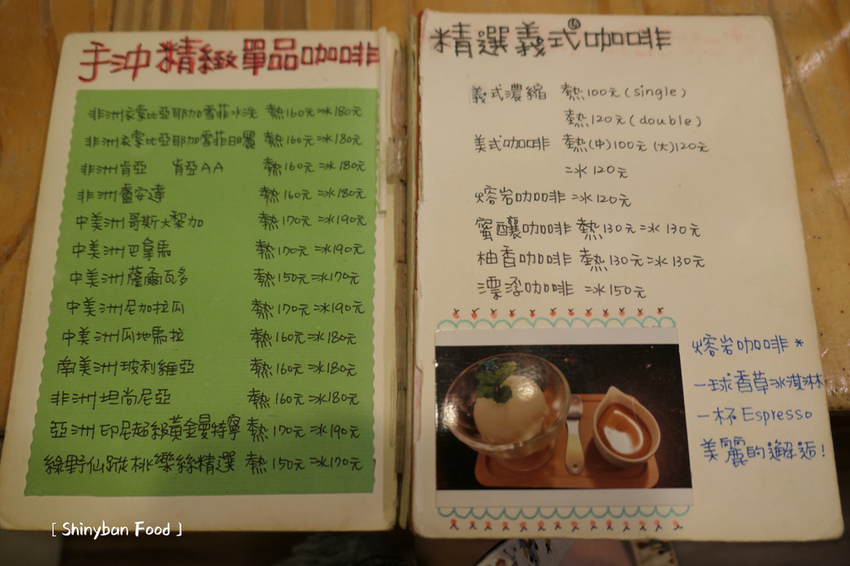 手沖精緻單品咖啡
非洲衣索比亞耶加雪菲水洗 熱160元 冰180元
非洲衣索比亞耶加雪菲日曬 熱160元 冰180元
非洲肯亞 肯亞AA 熱160元 冰180元
非洲盧安達 熱160元 冰180元
中美洲哥斯大黎加 熱170元 冰190元
中美洲巴拿馬 熱170元 冰190元
中美洲薩爾瓦多 熱150元 冰170元
中美洲尼加拉瓜 熱170元 冰190元
中美洲瓜地馬拉 熱160元 冰180元
南美洲玻利維亞 熱160元 冰180元
非洲坦尚尼亞 熱160元 冰180元
亞洲印尼超級黃金曼特寧 熱170元 冰190元
綠野仙蹤桃樂絲精選 熱150元 冰170元
精選義式咖啡
義式濃縮 熱100元(single)
熱120元(double)
美式咖啡 熱(中)100元(大)120元
冰120元
熔岩咖啡 冰120元
蜜釀咖啡 熱130元 冰130元
柚香咖啡 熱130元 冰130元
漂浮咖啡 冰150元
熔岩咖啡*
一球香草冰淇淋
一杯Espresso
美麗的邂逅!
[ Shinyban Food ]